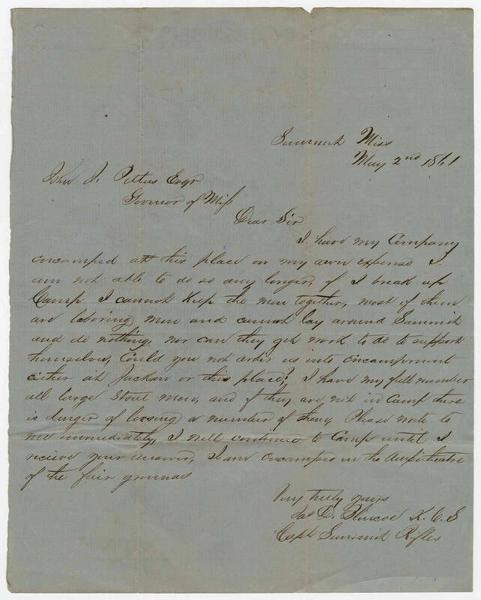 Summit Miss
May 2nd 1861
John J. Pettus Esqr
Govenor of Miss
Dear Sir
I have my Company
encamped at this place on my own expense I
am not able to do so any longer, if I break up
Camp I cannot keep the men together, most of them
are laboring men and cannot lay around Summit
and do nothing, nor can they get work to do to support
themselves, Could you not order us into encampment
either at Jackson or this place, I have my full number
all large Stout men, and if they are not in Camp there
is danger of loosing a number of them, Please write to
me immediately, I will continue to Camp until I
recieve your answer, I am encamped in the Ampitheatre
of the fair grounds
Very truly yours
Jas D. Blincoe K. C. S
Capt Summit Rifles